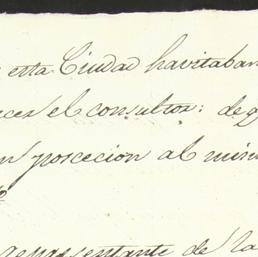 esta Ciudad havitaban
el consultor: de
poscecion al
representante de la